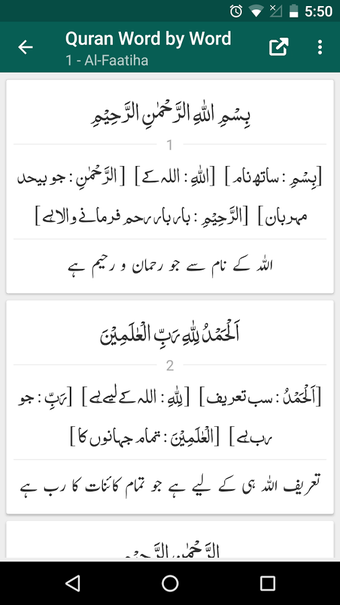 5:50
Quran Word by Word
1 - Al-Faatiha
بِسْمِ اللهِ الرَّحْمٰنِ الرَّحِيْمِ
1
[بِسْمِ : ساتھ نام] [اللهِ : اللہ کے] [الرَّحْمٰنِ : جو بیحد
مہربان] [الرَّحِيْمِ : بار بار رحم فرمانے والا ہے]
اللہ کے نام سے جو رحمان و رحیم ہے
اَلْحَمْدُ لِلّٰهِ رَبِّ الْعٰلَمِيْنَ
2
[اَلْحَمْدُ : سب تعریف] [لِلّٰهِ : اللہ کے لیے ہے] [رَبِّ : جو
رب ہے] [الْعٰلَمِيْنَ : تمام جہانوں کا]
تعریف اللہ ہی کے لیے ہے جو تمام کائنات کا رب ہے
الرَّحْمٰنِ الرَّحِيْمِ